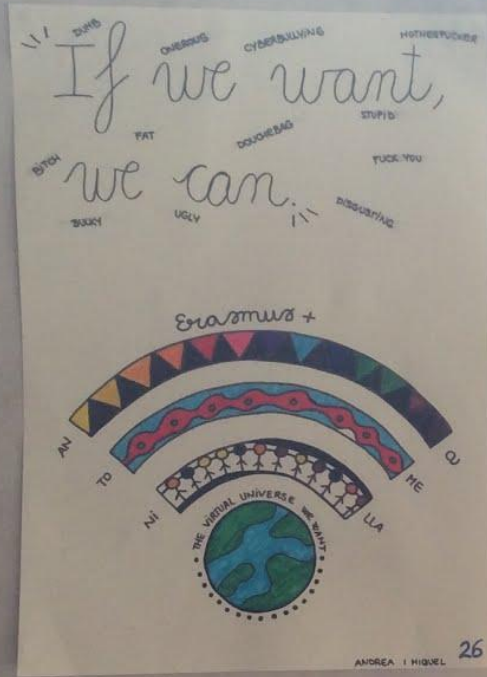 DUMB
ONEROUS
CYBERBULLYING
MOTHERFUCKER
If we want,
STUPID
FAT
DOUCHEBAG
BITCH
FUCK YOU
we can.
BULKY
UGLY
DISGUSTING
Erasmus +
AN
TO
NI
THE VIRTUAL UNIVERSE WE WANT
LLA
ME
ANDREA I MIQUEL
26